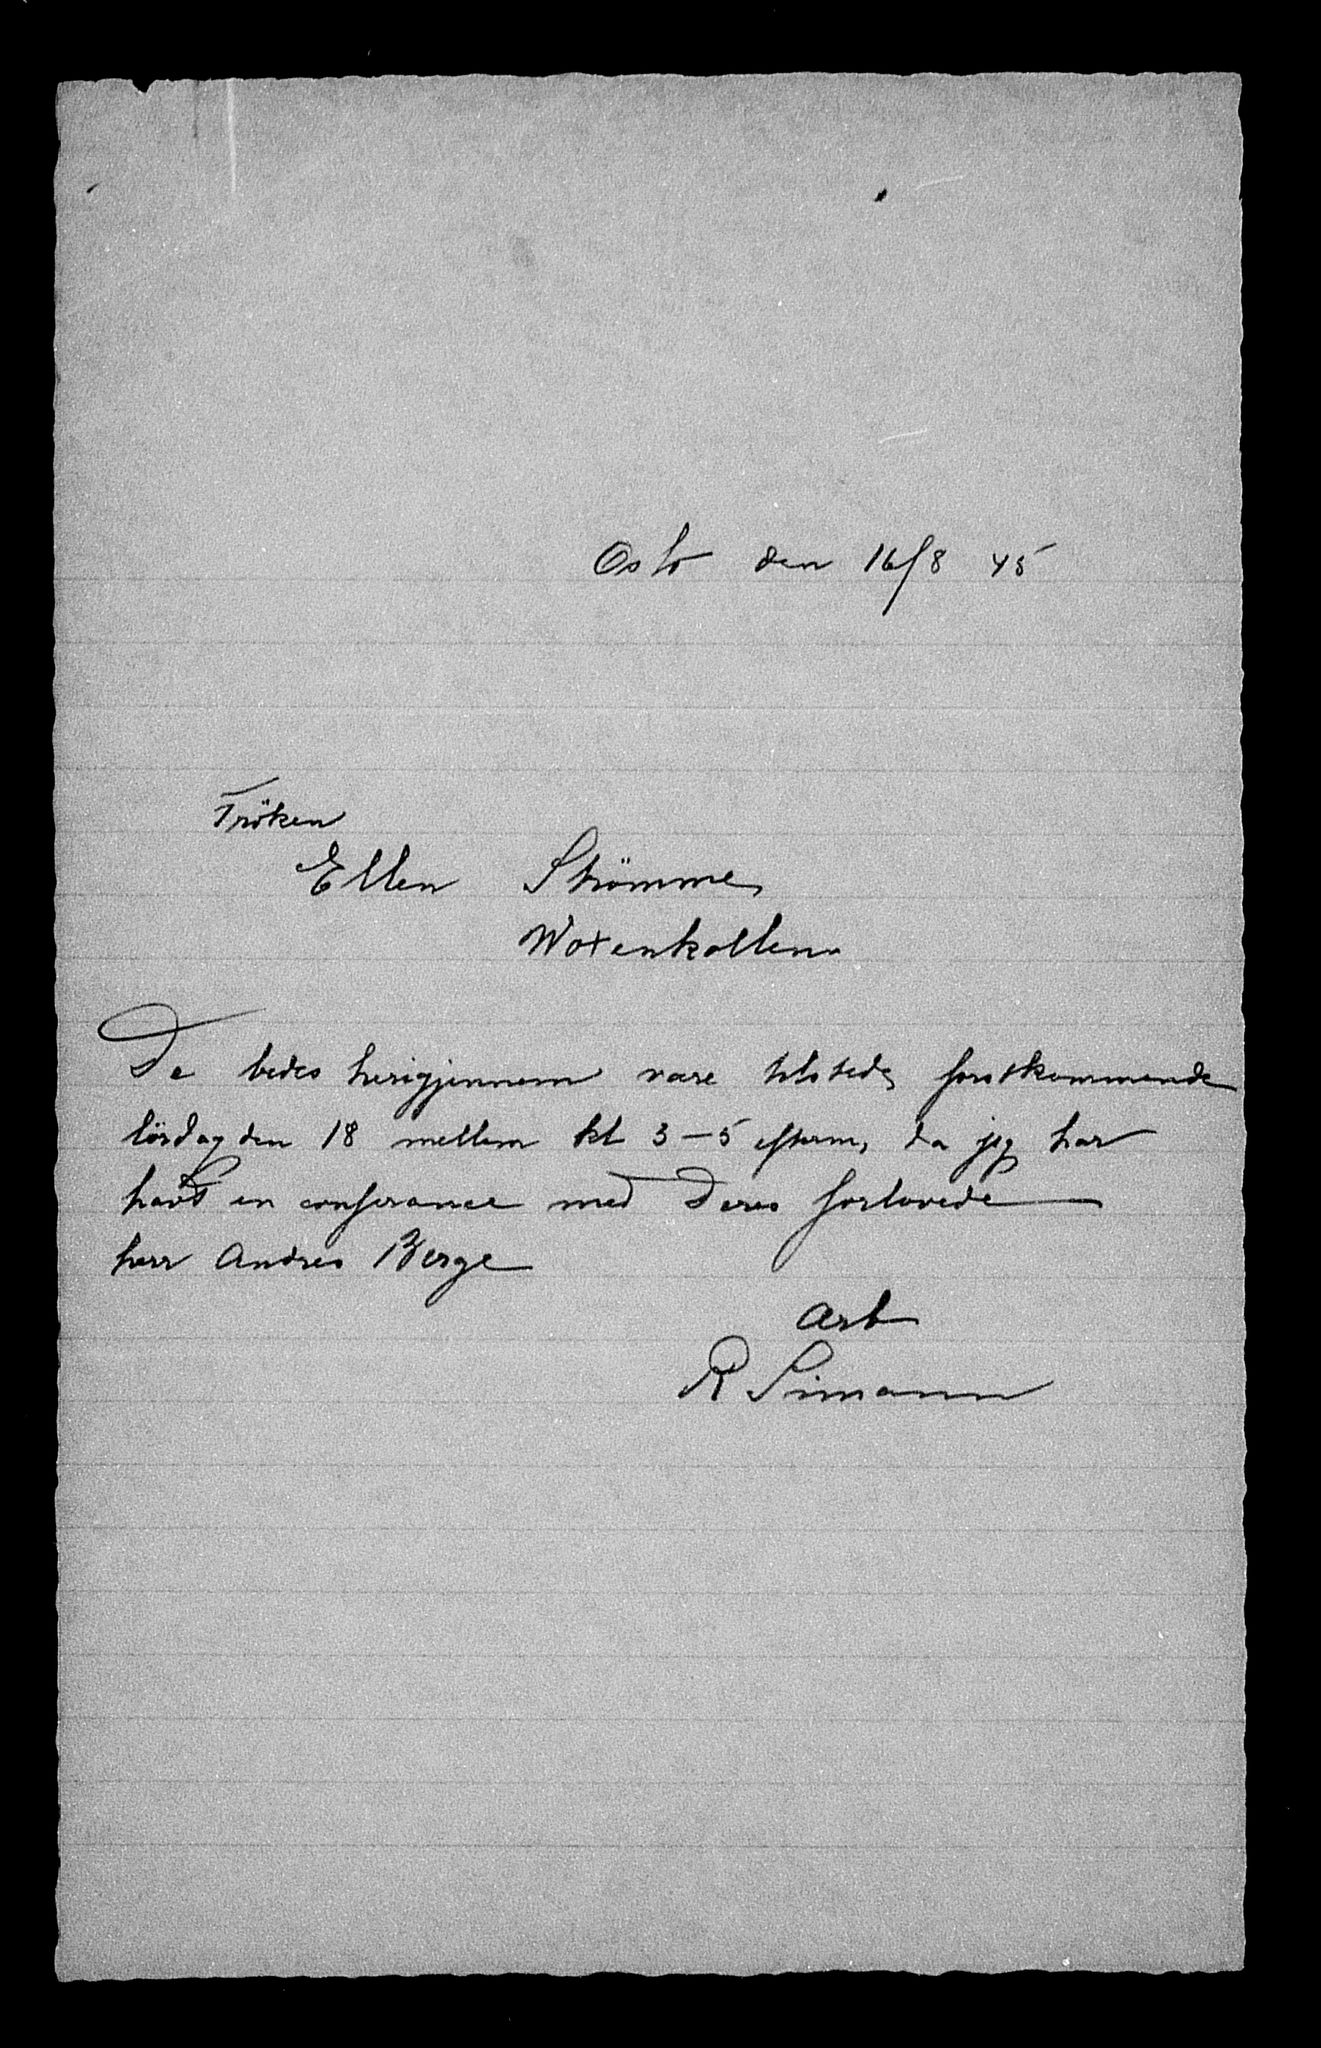 Oslo den 16/8 45
Fröken
Ellen Strömme,
Woxenkollen
De bedes herigjennem være tilstede förstkommende
lördag den 18 mellem kl 3–5 efterm, da jeg har
havt en conferance med Deres forlovede
herr Andres Berge
Arb
R Simann